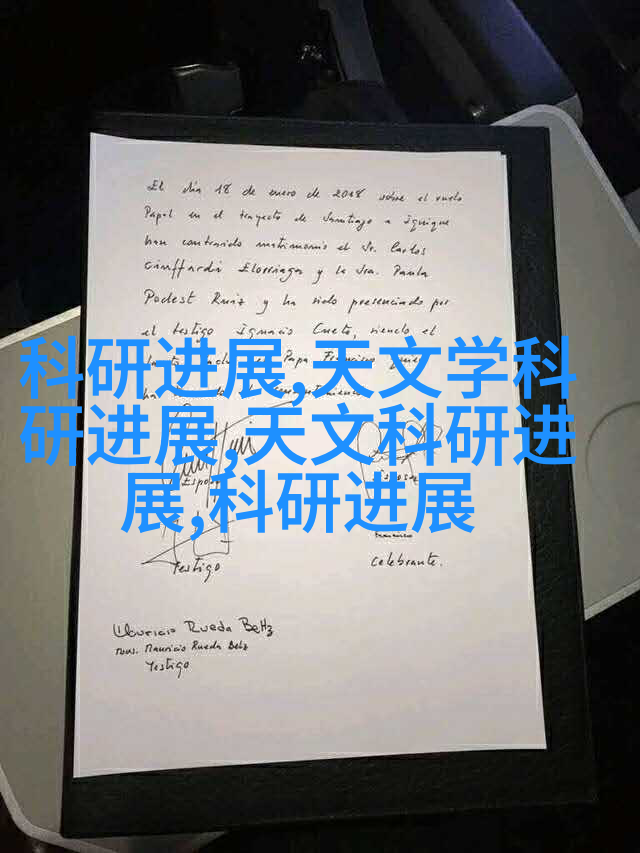 El día 18 de enero de 2018 sobre el vuelo
Papal en el trayecto de Santiago a Iquique
han contraido matrimonio el Sr. Carlos
Ciuffardi Elorriaga y la Sra. Paula
Podest Ruiz y ha sido presenciado por
el testigo Ignacio Cueto, siendo el
Papa Francisco quien
科研进展,天文学科
研进展,天文科研进
展,科研进展
Esposo
Esposa
Testigo
Celebrante.
Mauricio Rueda Beltz
Mons. Mauricio Rueda Beltz
Testigo